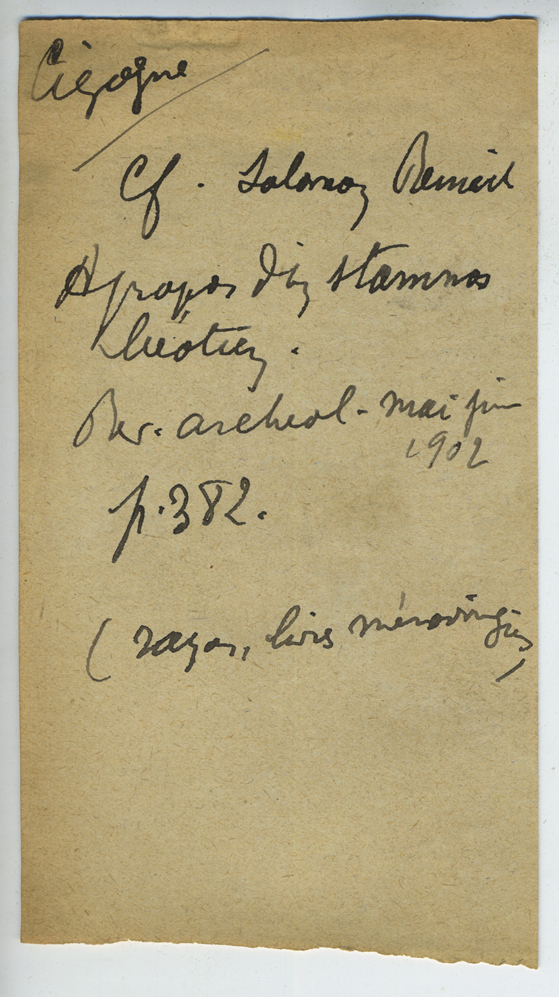 Cigogne
Cf. Salomon Reinach
A propos d'un stamnos
béotien.
Rev. archeol- mai juin
1902
p. 382.
( rasoirs, livres mérovingiens)